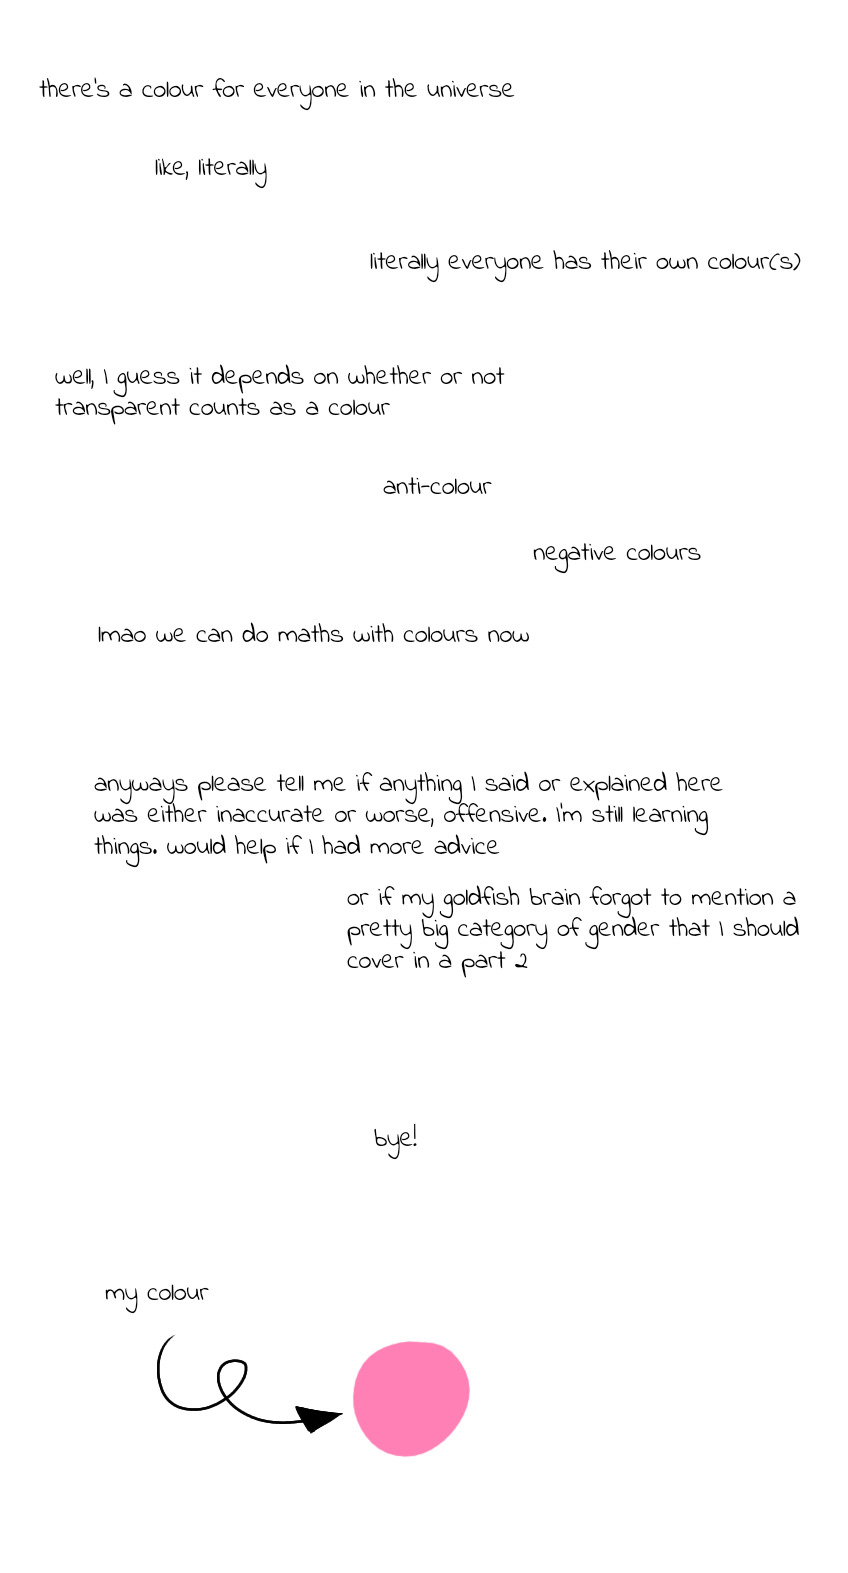 there's a colour for everyone in the universe
like, literally
literally everyone has their own colour(s)
well, I guess it depends on whether or not
transparent counts as a colour
anti-colour
negative colours
lmao we can do maths with colours now
anyways please tell me if anything I said or explained here
was either inaccurate or worse, offensive. I'm still learning
things. would help if I had more advice
or if my goldfish brain forgot to mention a
pretty big category of gender that I should
cover in a part 2
bye!
my colour